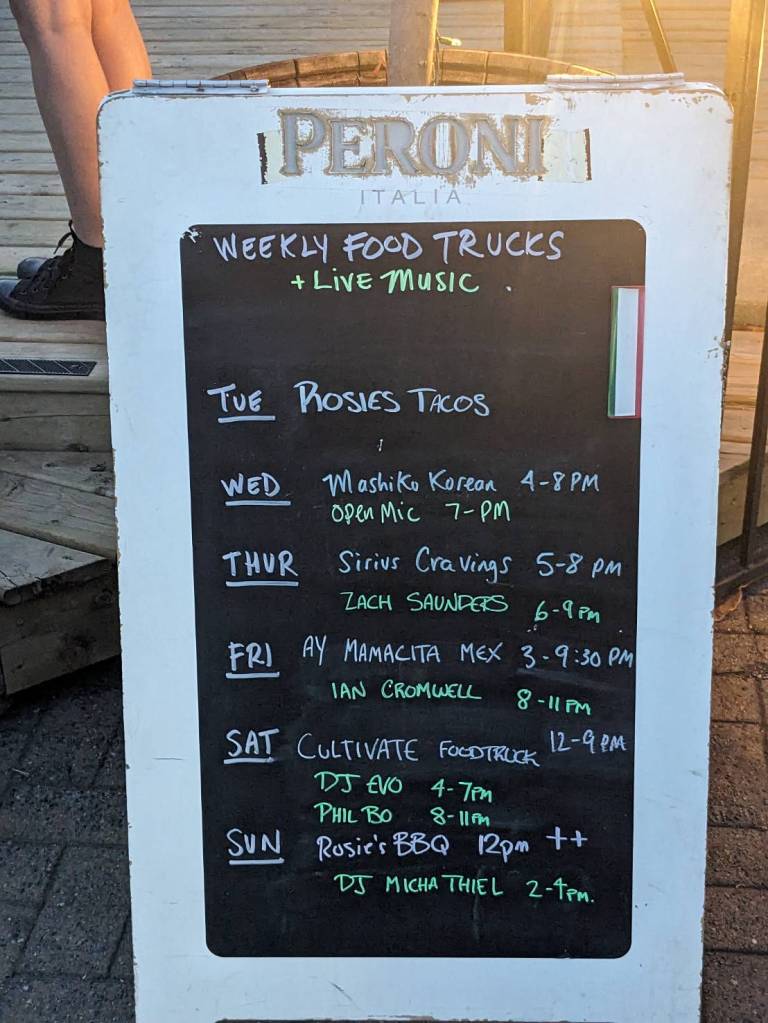 PERONI
ITALIA
WEEKLY FOOD TRUCKS
+ LIVE MUSIC .
TUE ROSIES TACOS
WED Mashiko Korean 4-8 PM
OPEN MIC 7-PM
THUR Sirius Cravings 5-8 PM
ZACH SAUNDERS 6-9PM
FRI AY MAMACITA MEX 3-9:30 PM
IAN CROMWELL 8-11 PM
SAT CULTIVATE FOODTRUCK 12-9 PM
DJ EVO 4-7PM
PHIL BO 8-11PM
SUN Rosie's BBQ 12pm ++
DJ MICHA THIEL 2-4PM.